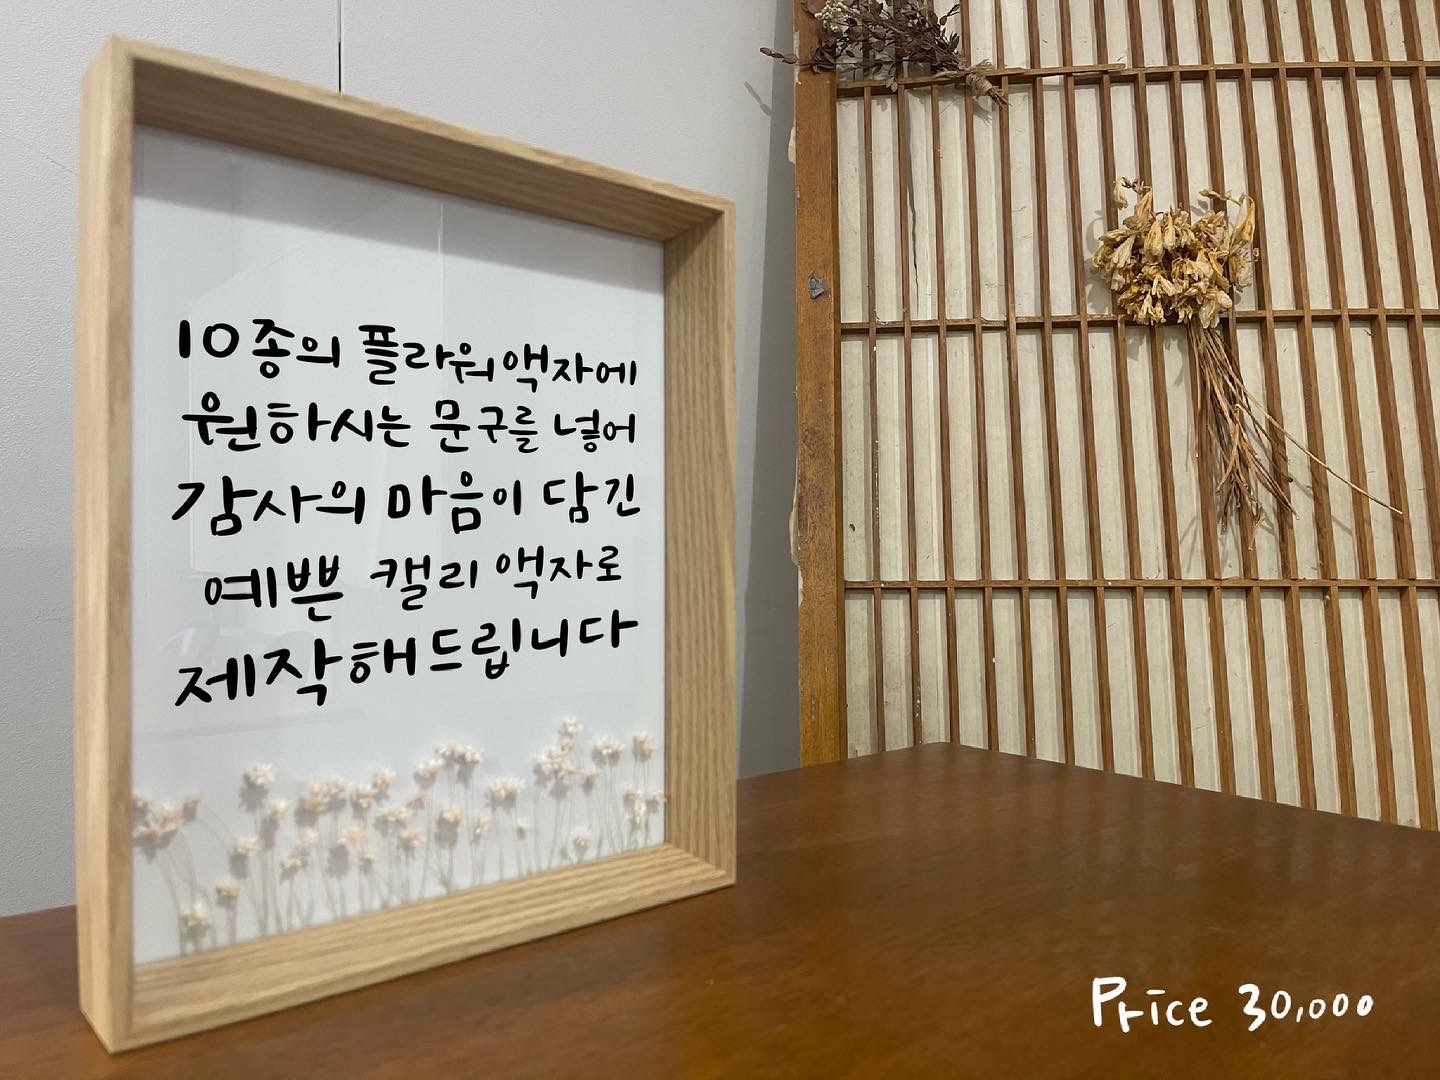 10종의 플라워액자에
원하시는 문구를 넣어
감사의 마음이 담긴
예쁜 캘리 액자로
제작해드립니다
Price 30,000